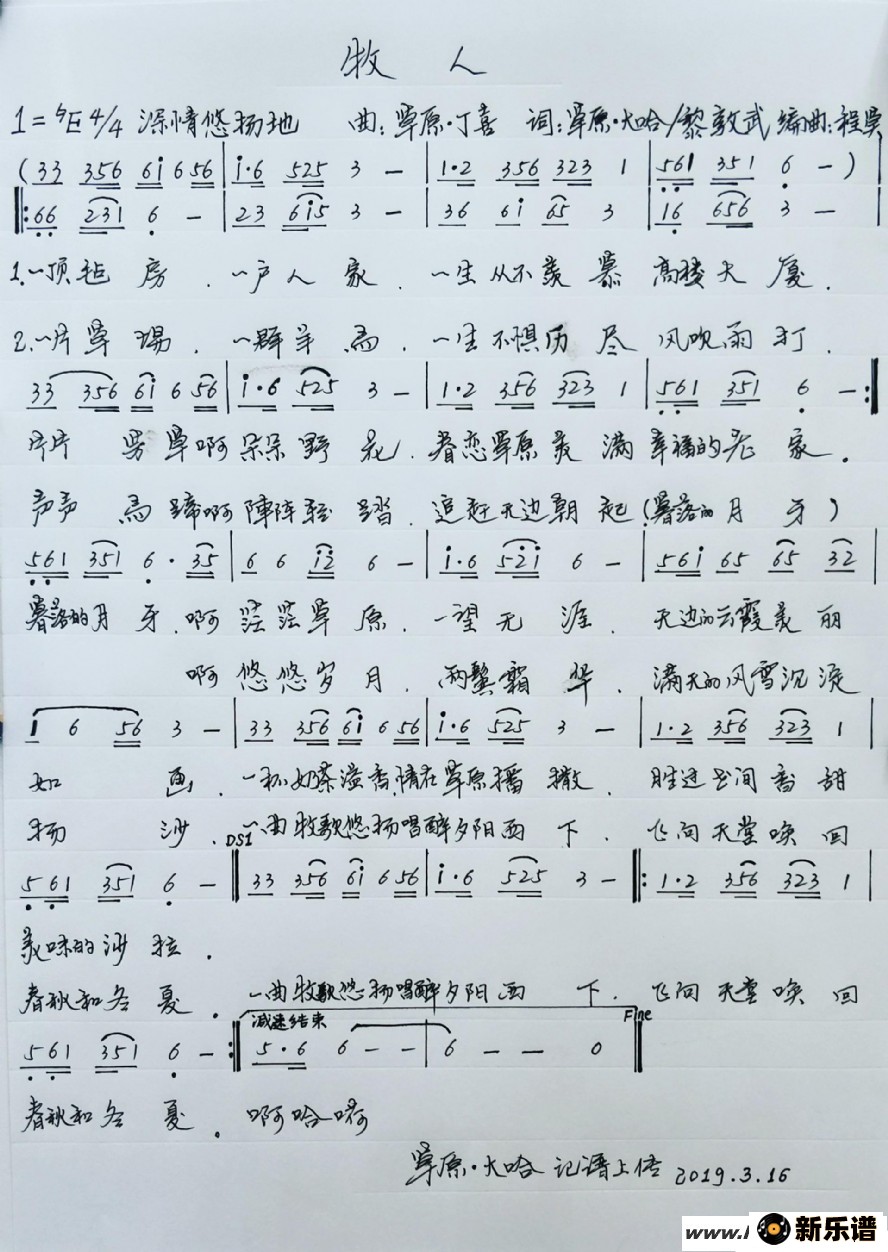 牧 人
1=♮E 4/4 深情悠扬地 曲:草原·丁喜 词:草原·大哈/黎敦武 编曲:程昊
(33 356 6i 656 | i·6 525 3 — | 1·2 356 323 1 | 561 351 6 —)
‖:66 231 6 — | 23 6i5 3 — | 36 6i 65 3 | 16 656 3 —
1.一顶毡房.一户人家.一生从不羡慕高楼大厦.
2.一片草场.一群羊马.一生不惧历尽风吹雨打.
33 356 6i 6 56 | i·6 525 3 — | 1·2 356 323 1 | 561 351 6 —:‖
片片芳草啊朵朵野花.眷恋草原美满幸福的老家.
声声马蹄啊陣阵轻踏.追赶无边朝起(暮落的月牙)
561 351 6·35 | 6 6 i2 6 — | i·6 52i 6 — | 56i 65 65 32
暮落的月牙.啊茫茫草原.一望无涯.天边的云霞美丽
啊悠悠岁月.两鬓霜华.满天的风雪沉淀
i 6 56 3 — | 33 356 6i 6 56 | i·6 525 3 — | 1·2 356 323 1
如画.一杯奶茶溢香情在草原播撒.胜过世间香甜
扬沙.DS1一曲牧歌悠扬唱醉夕阳西下.飞向天堂唤回
561 351 6 — ‖ 33 356 6i 6 56 | i·6 525 3 — ‖: 1·2 356 323 1
美味的沙拉.
春秋和冬夏.一曲牧歌悠扬唱醉夕阳西下.飞向天堂唤回
减速结束 Fine
561 351 6 —:‖ 5·6 6 — — | 6 — — 0 ‖
春秋和冬夏.啊哈嗬
草原·大哈 记谱上传 2019.3.16
www. 新乐谱